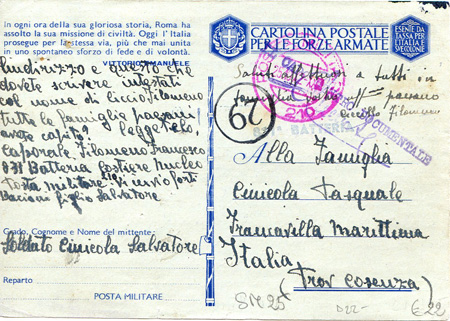 In ogni ora della sua gloriosa storia, Roma ha
assolto la sua missione di civiltà. Oggi l'Italia
prosegue per la stessa via, più che mai unita
in uno spontaneo sforzo di fede e di volontà.
VITTORIO EMANUELE
CARTOLINA POSTALE
PER LE FORZE ARMATE
ESENTE DA
TASSA PER
L'ITALIA E
COLONIE
questo che
dovete scrivere
col nome di Ciccio Filomeno
tutte le famiglie paesani
avete capito? legge telo
Caporale Filomeno Francesco
831 Batteria Costiera Nucleo
Posta militare 210 Vi invio forti
Bacioni figlio Salvatore
Grado, Cognome e Nome del mittente:
Soldato Cimicola Salvatore
Reparto
POSTA MILITARE
Saluti affettuosi a tutti in
famiglia
paesano
Filomeno
210
29
BATTERIA
DOCUMENTALE
Alla Famiglia
Cimicola Pasquale
Francavilla Marittima
Italia
(Prov Cosenza)
SM25
D22-
€22